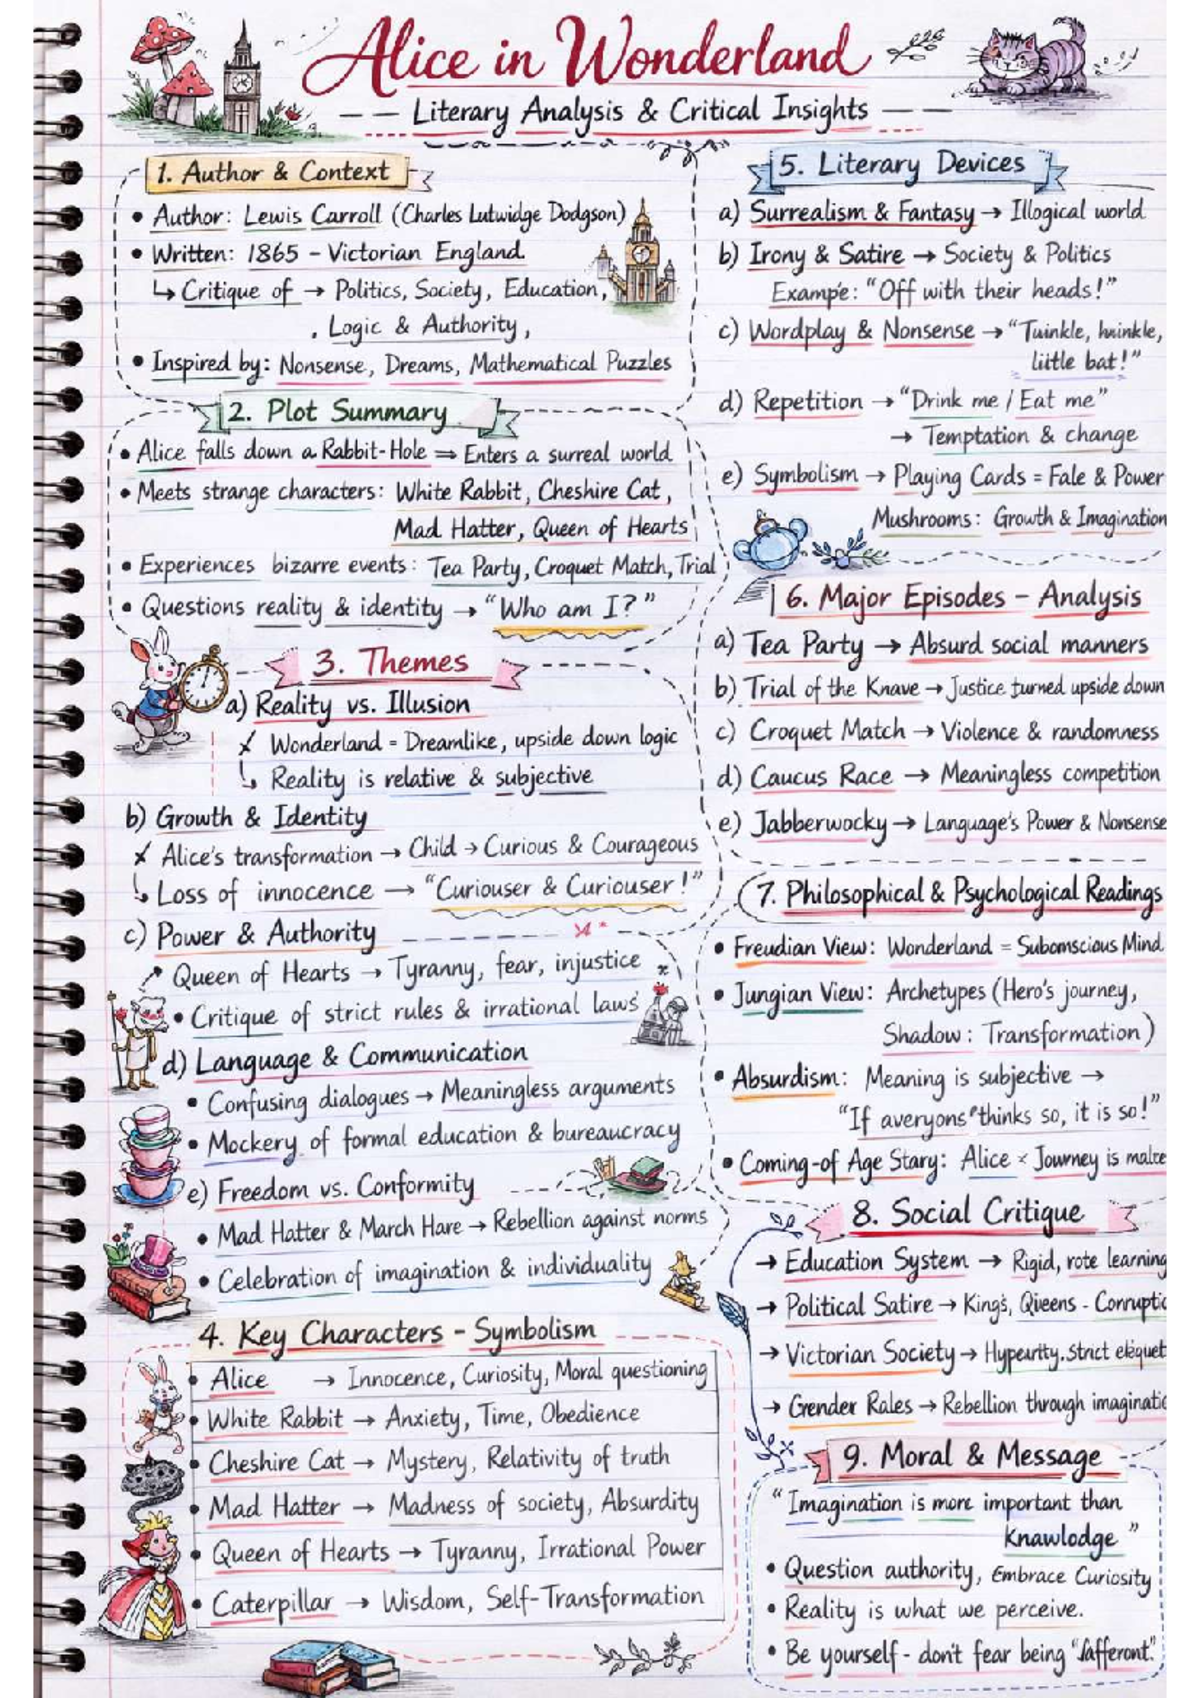 Alice in Wonderland
Literary Analysis & Critical Insights
1. Author & Context
• Author: Lewis Carroll (Charles Lutwidge Dodgson)
• Written: 1865 – Victorian England
↳ Critique of → Politics, Society, Education,
. Logic & Authority,
• Inspired by: Nonsense, Dreams, Mathematical Puzzles
2. Plot Summary
• Alice falls down a Rabbit-Hole ⇒ Enters a surreal world
• Meets strange characters: White Rabbit, Cheshire Cat,
Mad Hatter, Queen of Hearts
• Experiences bizarre events: Tea Party, Croquet Match, Trial
• Questions reality & identity → “Who am I?”
3. Themes
a) Reality vs. Illusion
✗ Wonderland = Dreamlike, upside down logic
↳ Reality is relative & subjective
b) Growth & Identity
✗ Alice's transformation → Child → Curious & Courageous
↳ Loss of innocence → “Curiouser & Curiouser!”
c) Power & Authority
Queen of Hearts → Tyranny, fear, injustice
• Critique of strict rules & irrational laws
d) Language & Communication
• Confusing dialogues → Meaningless arguments
• Mockery of formal education & bureaucracy
e) Freedom vs. Conformity
• Mad Hatter & March Hare → Rebellion against norms
• Celebration of imagination & individuality
4. Key Characters - Symbolism
• Alice → Innocence, Curiosity, Moral questioning
• White Rabbit → Anxiety, Time, Obedience
• Cheshire Cat → Mystery, Relativity of truth
• Mad Hatter → Madness of society, Absurdity
• Queen of Hearts → Tyranny, Irrational Power
• Caterpillar → Wisdom, Self-Transformation
5. Literary Devices
a) Surrealism & Fantasy → Illogical world
b) Irony & Satire → Society & Politics
Exampe: “Off with their heads!”
c) Wordplay & Nonsense → “Tuinkle, hninkle,
liitle bat!”
d) Repetition → “Drink me / Eat me”
→ Temptation & change
e) Symbolism → Playing Cards = Fale & Power
Mushrooms: Growth & Imagination
6. Major Episodes – Analysis
a) Tea Party → Absurd social manners
b) Trial of the Knave → Justice turned upside down
c) Croquet Match → Violence & randomness
d) Caucus Race → Meaningless competition
e) Jabberwocky → Language's Power & Nonsense
7. Philosophical & Psychological Readings
• Freudian View: Wonderland = Subomscious Mind
• Jungian View: Archetypes (Hero's journey,
Shadow: Transformation)
• Absurdism: Meaning is subjective →
“If averyons thinks so, it is so!”
• Coming-of Age Stary: Alice × Journey is malte
8. Social Critique
→ Education System → Rigid, rote learning
→ Political Satire → King's, Qieens - Corruptic
→ Victorian Society → Strict
→ Gender Rales → Rebellion through imaginatic
9. Moral & Message
“Imagination is more important than
Knawlodge”
• Question authority, Embrace Curiosity
• Reality is what we perceive.
• Be yourself - don't fear being